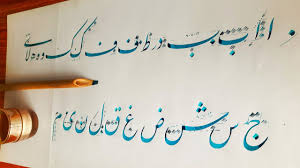 ا پ ب ر ظ ف ف ک ک و ه لا ی
ج س ش ض غ ق ل ن ی م